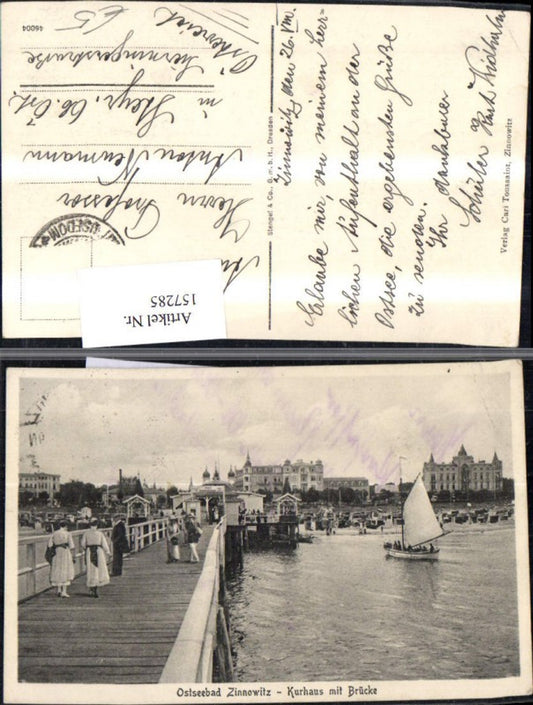 Zinnowitz den 26. VIII.
Erlaube mir, von meinem herr-
lichen Aufenthalt an der
Ostsee, die ergebensten Grüße
zu senden.
Ihr dankbarer
Schüler
Verlag Carl Toussaint, Zinnowitz
Stengel & Co., G. m. b. H., Dresden
46004
Herrn Professor
Anton Neumann
in Steyr, Ob. Öst.
Österreich
USEDOM
Artikel Nr.
157285
Ostseebad Zinnowitz - Kurhaus mit Brücke